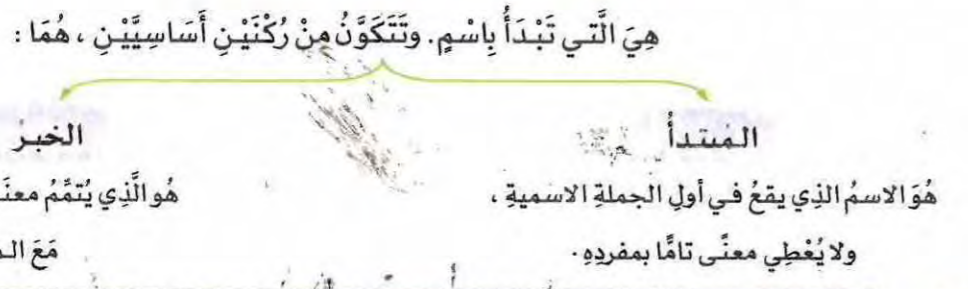 هِيَ الَّتي تَبْدَأُ بِاسْمٍ. وتَتَكَوَّنُ مِنْ رُكْنَيْنِ أَسَاسِيَّيْنِ ، هُمَا :
المُبتدأُ
هُوَ الاسمُ الذِي يقعُ في أولِ الجملةِ الاسميةِ ،
ولا يُعْطِي معنًى تامًّا بمفردِهِ .
الخبرُ
هُو الَّذِي يُتمِّمُ
مَعَ